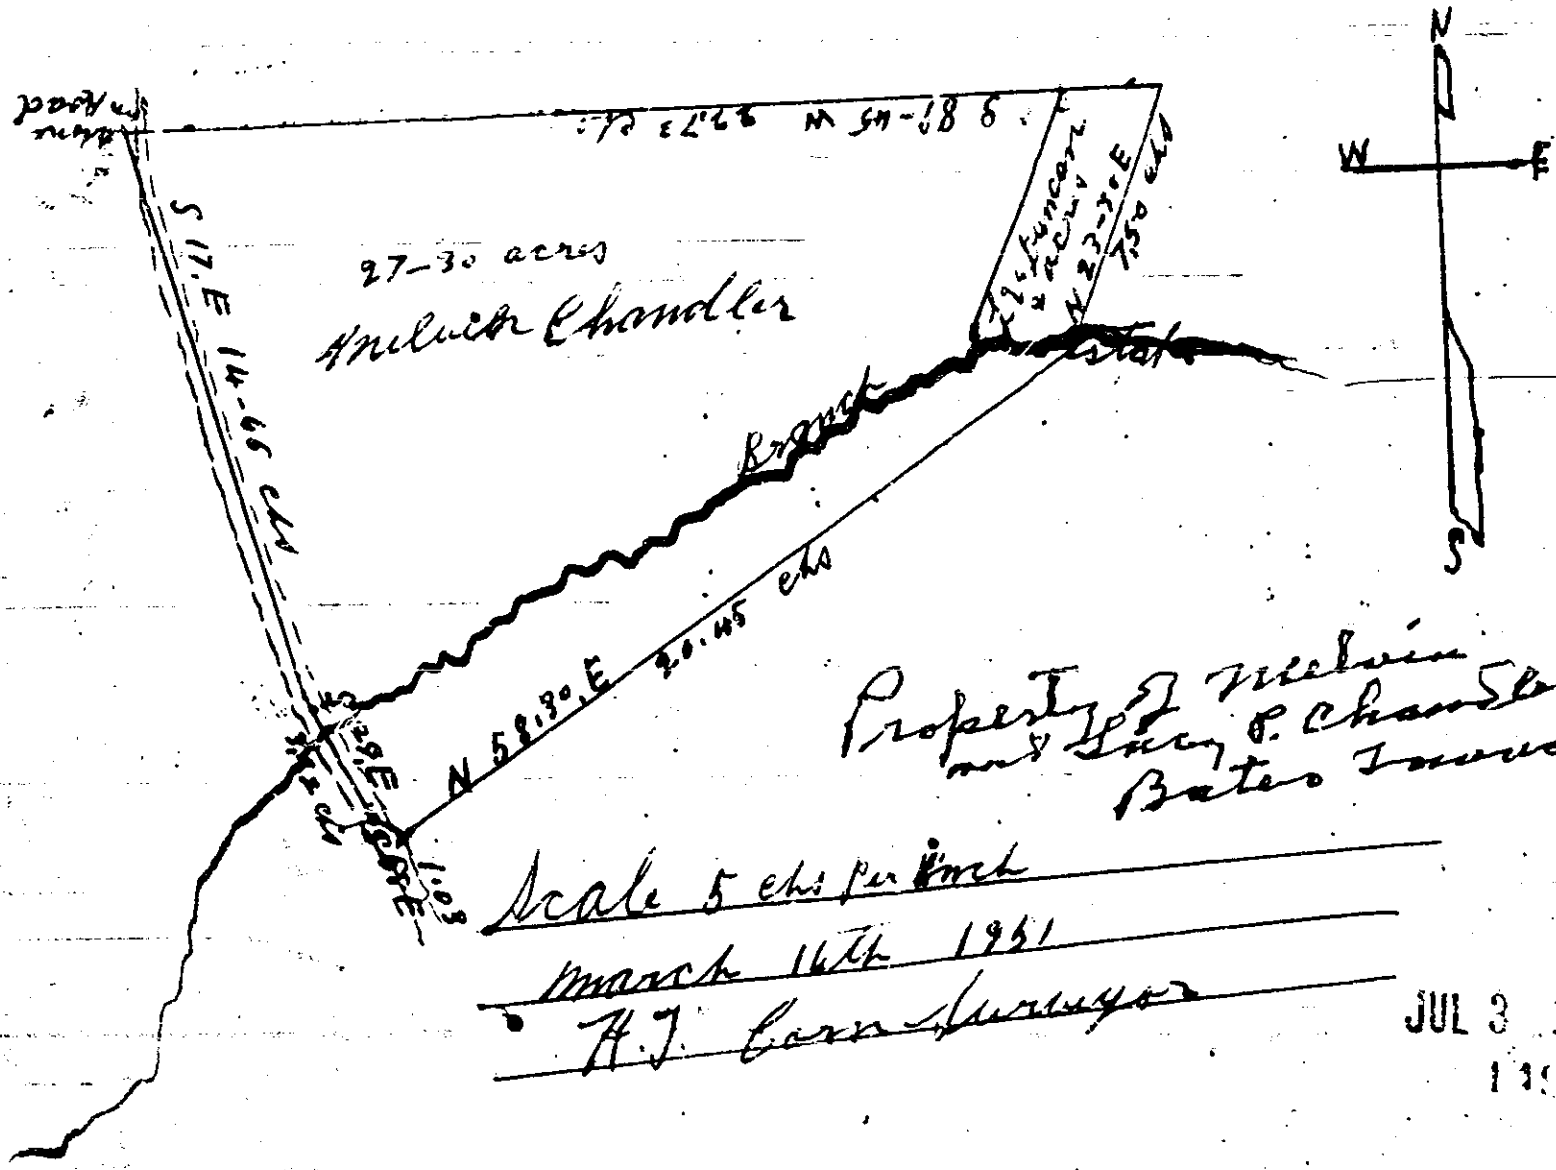 N
Road
S 87-45 W 22.73 chs
W
E
S 17. E 14-46 chs
27-30 acres
Melvin Chandler
4 acres
N 23-30 E
7.50 chs
stake
Branch
S
N 58.30. E 20.45 chs
S 29. E
chs
E
1.03
Property of Melvin
and Lucy P. Chandle
Bates
Scale 5 chs per inch
March 16th 1951
H.T. Corn Surveyor
JUL 3